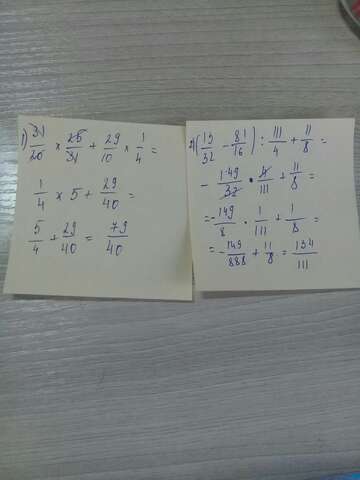 1) 31/20 × 25/31 + 29/10 × 1/4 =
1/4 × 5 + 29/40 =
5/4 + 29/40 = 79/40
2) (13/32 - 81/16) : 111/4 + 11/8 =
- 149/32 · 4/111 + 11/8 =
= - 149/8 · 1/111 + 1/8 =
= - 149/888 + 11/8 = 134/111